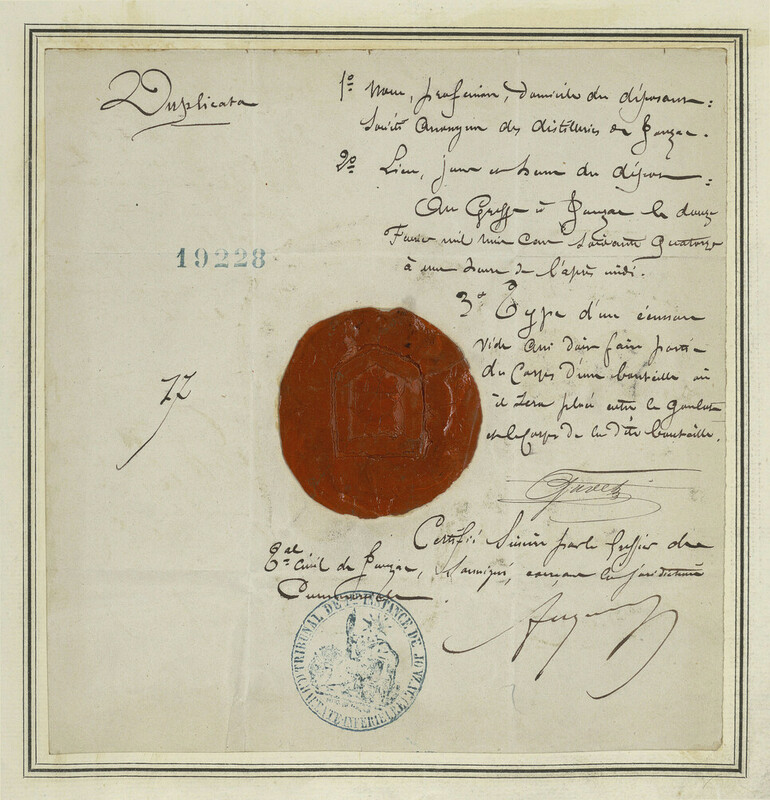 Duplicata
1º Nom, profession, domicile du déposant :
Société Anonyme des distilleries de Jonzac.
2º Lieu, jour et heure du dépot :
Au Greffe à Jonzac le douze
Février mil huit cent soixante quatorze
à une heure de l'après midi.
19228
3º Type d'un écusson
vide qui doit faire partie
du Corps d'une bouteille où
il sera placé entre le goulot
et le Corps de la dite bouteille.
77
Certifié Sincère par le Greffier du
Civil de Jonzac, Soussigné, exerçant la juridiction
Commerciale
TRIBUNAL DE 1RE INSTANCE DE JONZAC
CHARENTE-INFERIEURE